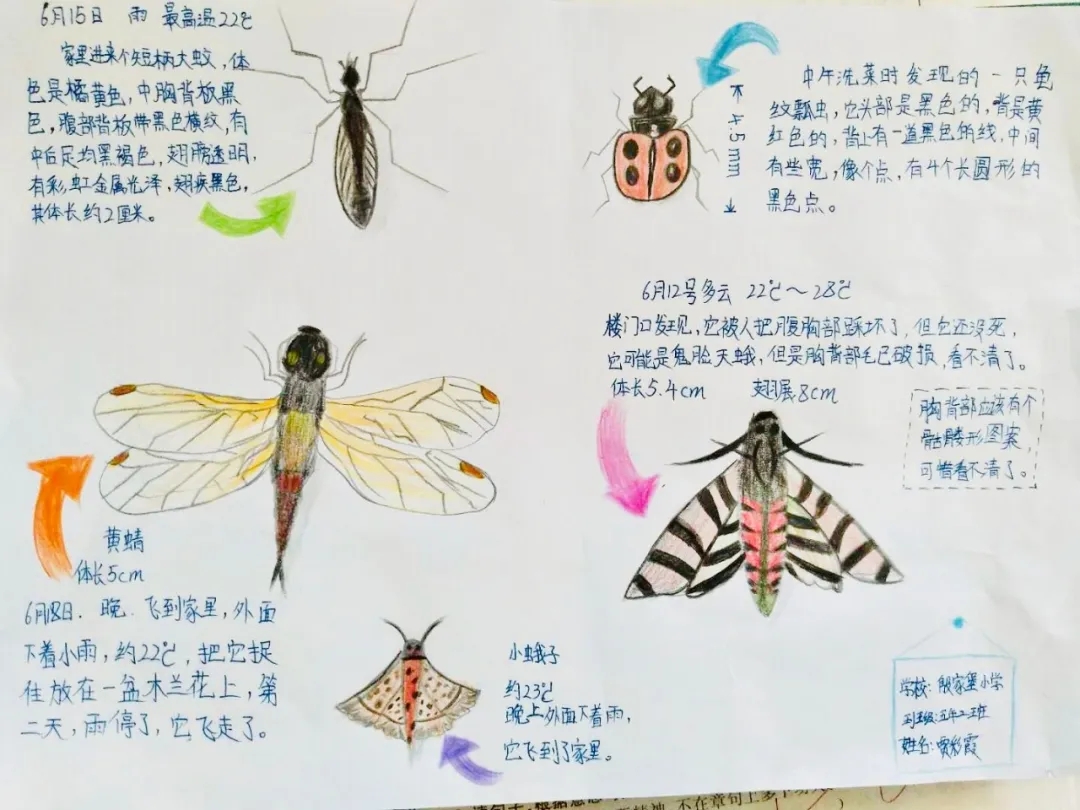 6月15日 雨 最高温22℃
家里进来个短柄大蚊，体
色是橘黄色，中胸背板黑
色，腹部背板带黑色横纹，有
中后足均黑褐色，翅膀透明，
有彩虹金属光泽，翅痕黑色，
其体长约2厘米。
4.5mm
中午洗菜时发现的一只龟
纹瓢虫，它头部是黑色的，背是黄
红色的，背上有一道黑色的线，中间
有些宽，像个点，有4个长圆形的
黑色点。
6月12号多云 22℃～28℃
楼门口发现，它被人把腹胸部踩坏了，但它还没死，
它可能是鬼脸天蛾，但是胸背部毛已破损，看不清了。
体长5.4cm 翅展8cm
胸背部应该有个
骷髅形图案，
可惜看不清了。
黄蜻
体长5cm
6月18日．晚．飞到家里，外面
下着小雨，约22℃，把它捉
住放在一盆木兰花上，第
二天，雨停了，它飞走了。
小蛾子
约23℃
晚上外面下着雨，
它飞到了家里。
学校：殷家堡小学
班级：五年二班
姓名：贾彩霞